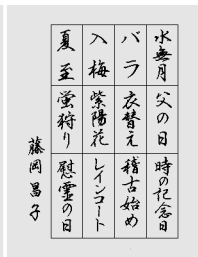 水無月
父の日
時の記念日
バラ
衣替え
稽古始め
入梅
紫陽花
レインコート
夏至
蛍狩り
慰霊の日
藤岡昌子